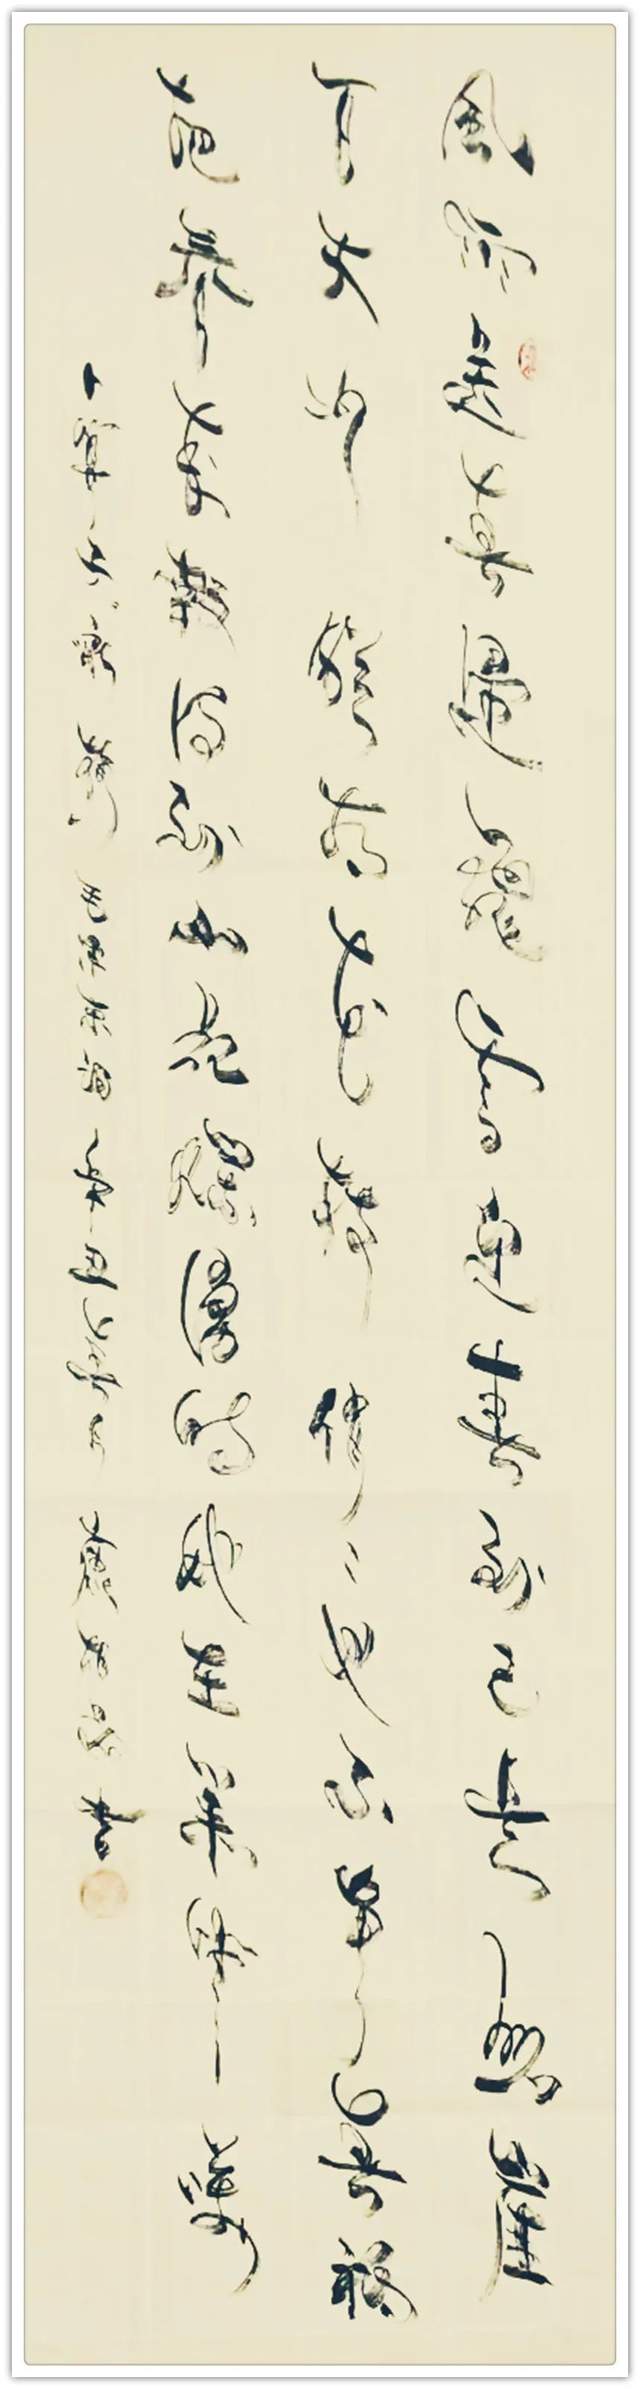 風雨送春歸飛雪迎春到已是懸崖
百丈冰猶有花枝俏俏也不爭春祇
把春來報待到山花爛漫時她在叢中笑
卜算子詠梅 毛澤東詞 辛丑 書